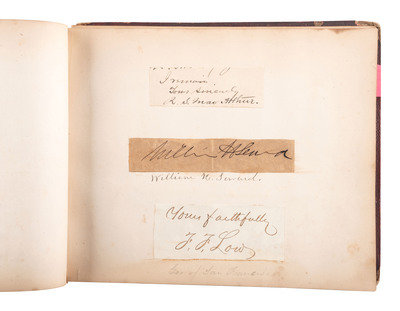 I remain
Yours Sincerely
MacArthur.
William H Seward
William H. Seward.
Yours faithfully
F. F. Low
Gov of San Francisco